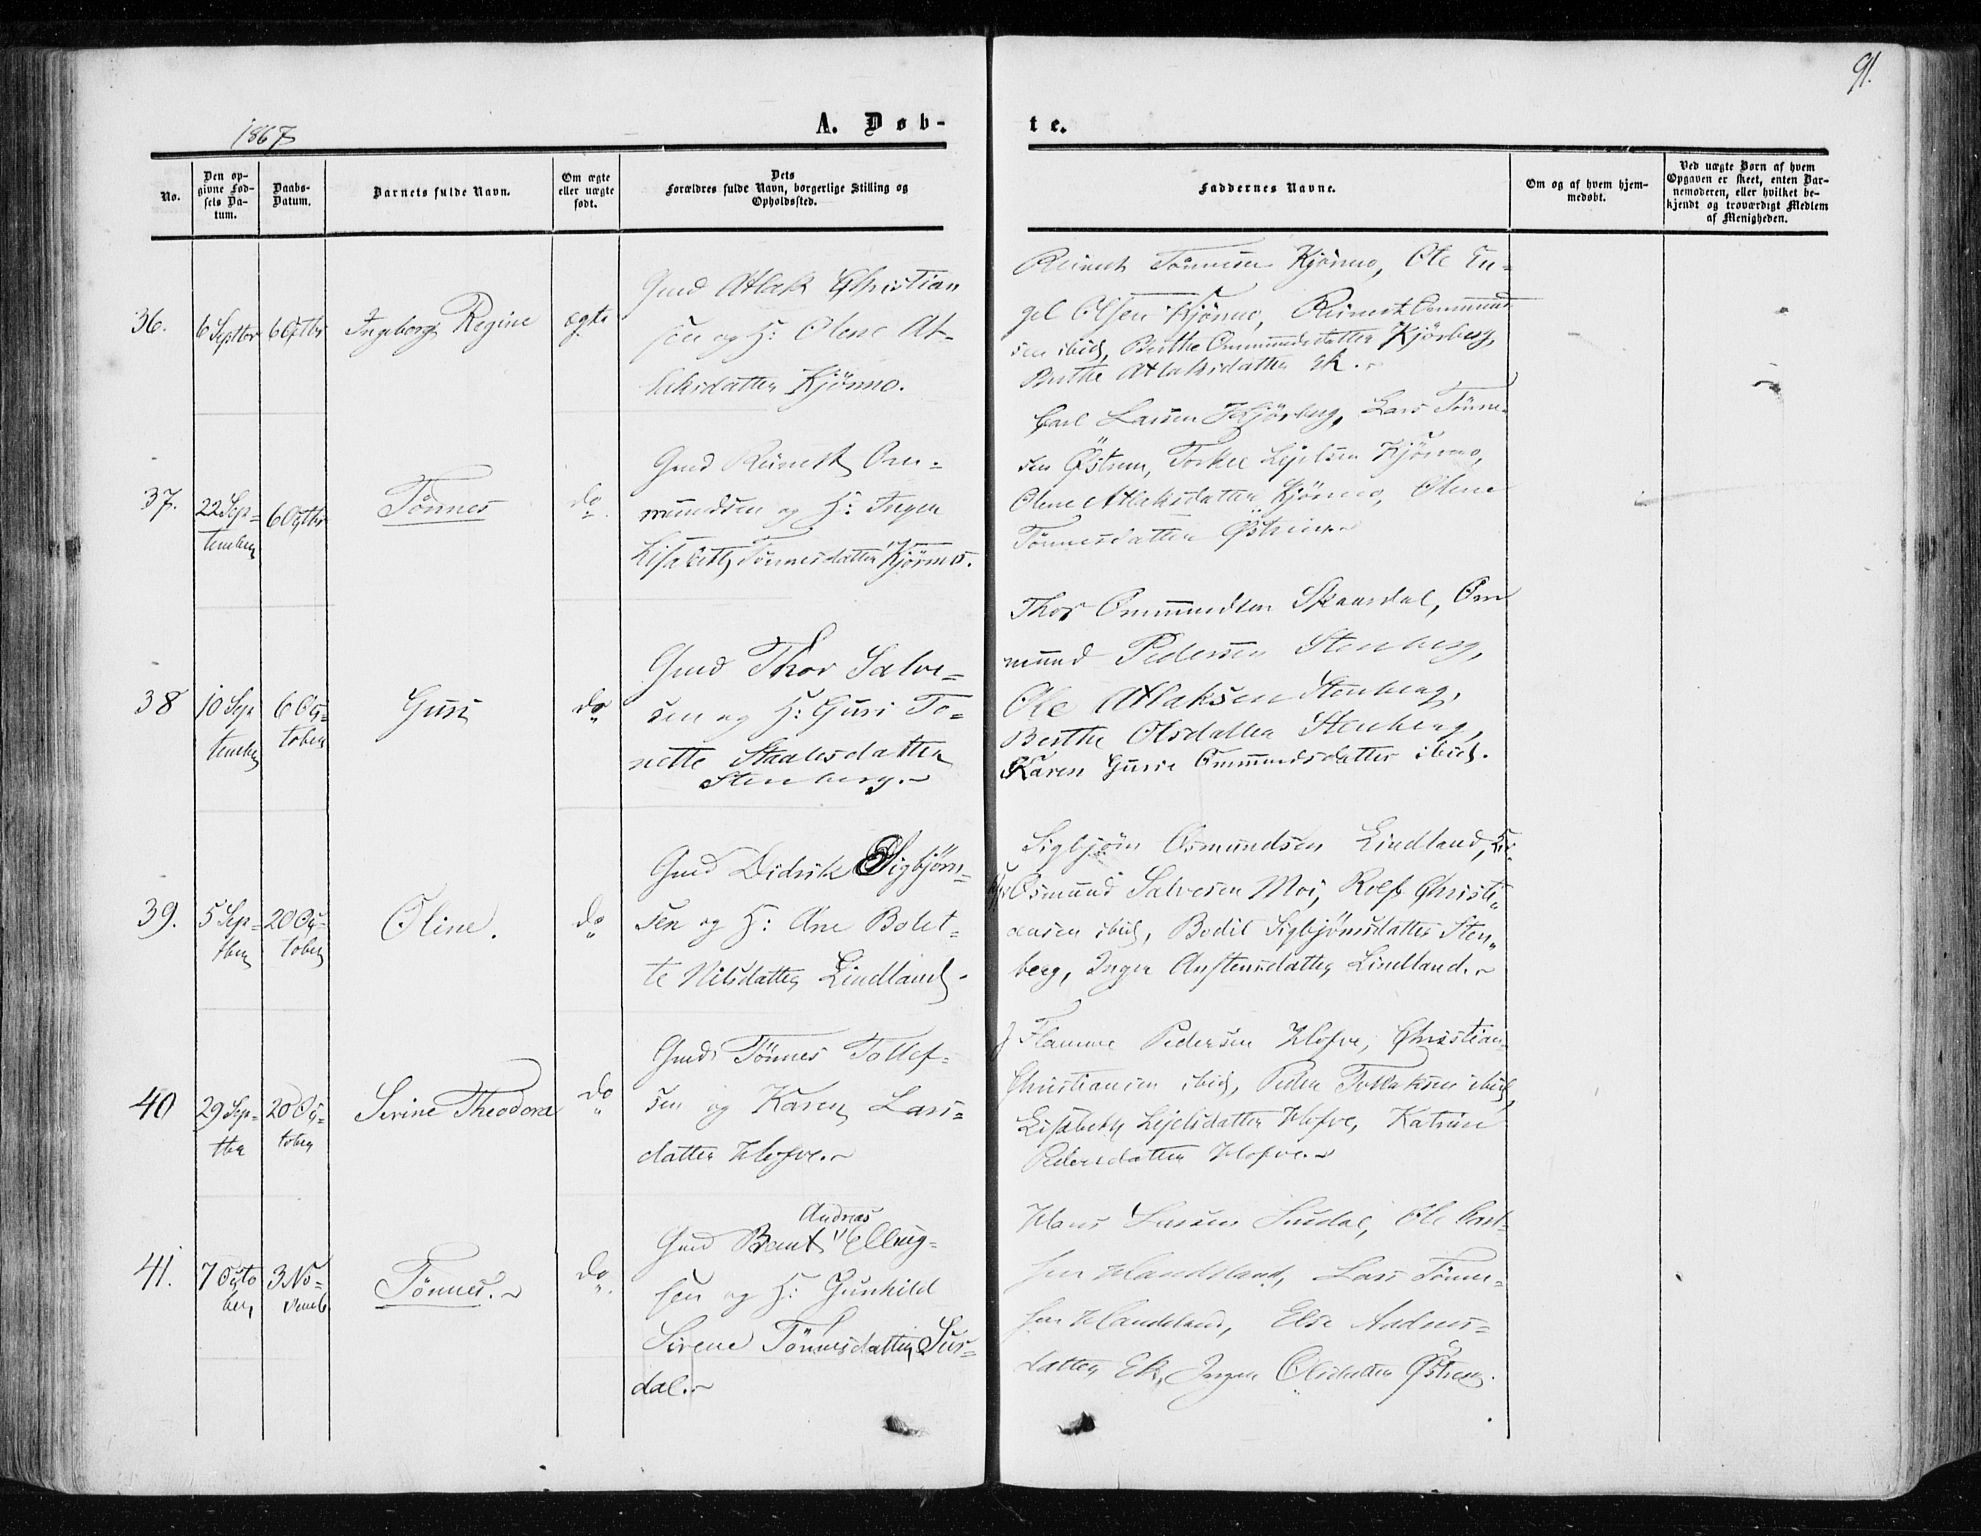 91.
1867
A. Døb-
te.
No.
Den op-
givne Fød-
sels Da-
tum.
Daabs-
Datum.
Barnets fulde Navn.
Om ægte
eller uægte
født.
Dets
Forældres fulde Navn, borgerlige Stilling og
Opholdssted.
Faddernes Navne.
Om og af hvem hjem-
medøbt.
Ved uægte Børn af hvem
Opgaven er skeet, enten Bar-
nemoderen, eller hvilket be-
kjendt og troværdigt Medlem
af Menigheden.
36.
6 Septbr
6 Octbr
Ingeborg Regine
ægte
Gmd Atlak Christian
sen og H: Olene At-
laksdatter Kjørmo.
Reinert Tønnesen Kjørmo, Ole En-
gel Olsen Kjørmo, Reinert Ommund
sen ibid, Berthe Ommundsdatter Kjørberg,
Berthe Atlaksdatter Ek.
37.
22 Sep-
tember
6 Octbr
Tønnes
do
Gmd Reinert Om-
mundsen og H: Inger
Lisabeth Tønnesdatter Kjørmo.
Carl Larsen Kjørberg, Lars Tønne-
sen Østrem, Torkel Lejelsen Kjørmo,
Olene Atlaksdatter Kjørmo, Olene
Tønnesdatter Østrem
38
10 Sep
tember
6 Oc-
tober
Guri
do
Gmd Thor Salve-
sen og H: Guri To-
nette Staalesdatter
Stenberg.
Thor Ommundsen Skaardal, Om
mund Pedersen Stenberg,
Ole Atlaksen Stenberg,
Berthe Olsdatter Stenberg,
Karen Gurie Ommundsdatter ibid.
39.
5 Sep-
tber
20 Oc-
tober
Oline.
do
Gmd Didrik Sigbjørn-
sen og H: Ane Bolet-
te Nilsdatter Lindland.
Sigbjørn Osmundsen Lindland,
Osmund Salvesen Moi, Rolf Christi-
ansen ibid, Bodil Sigbjørnsdatter Sten-
berg, Inger Anstensdatter Lindland.
40
29 Sep-
tber
20 Oc-
tober
Sirine Theodora
do
Gmd Tønnes Tollef-
sen og Karen Lars-
datter Hofve.
Flamme Pedersen Hofve, Christian
Christiansen ibid, Peder Tollaksen ibid,
Lisabeth Lejelsdatter Hofve, Katrine
Pedersdatter Hofve.
41.
7 Octo
ber
3 No-
vemb
Tønnes.
do
Andreas
Gmd Bent Elling-
sen og H: Gunhild
Sirene Tønnesdatter Sus-
dal.
Hans Larsen Susdal, Ole
sen Handeland, Lars Tønne-
sen Handeland, Else Andreas-
datter Ek, Inger Olsdatter Østrem.